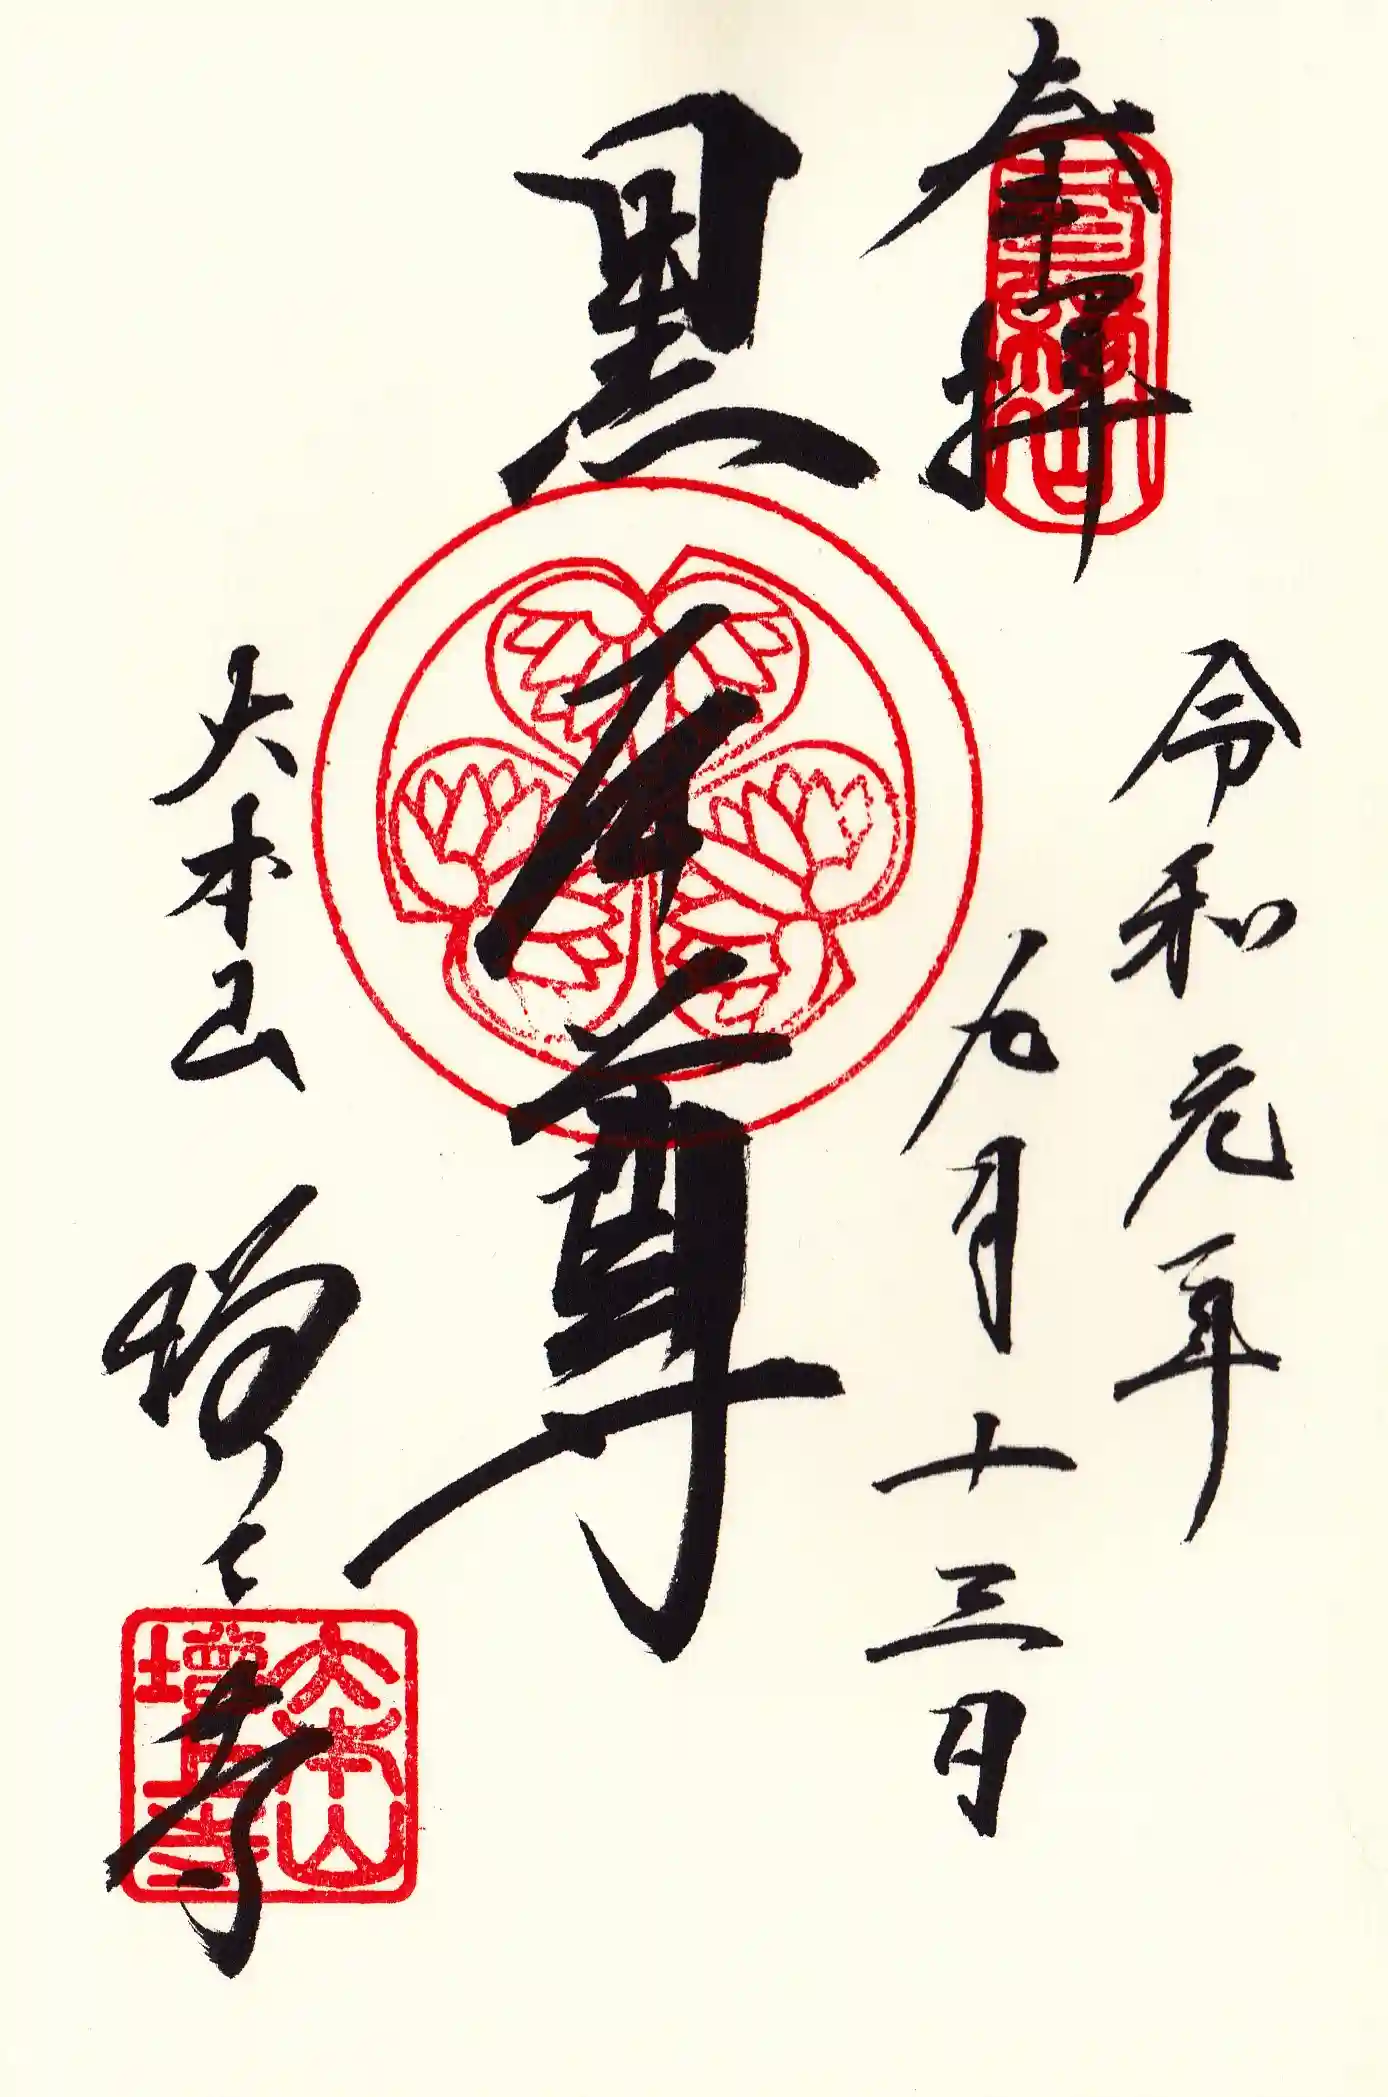 奉拝
令和元年
九月十三日
黒本尊
大本山
増上寺
大本山
増上寺